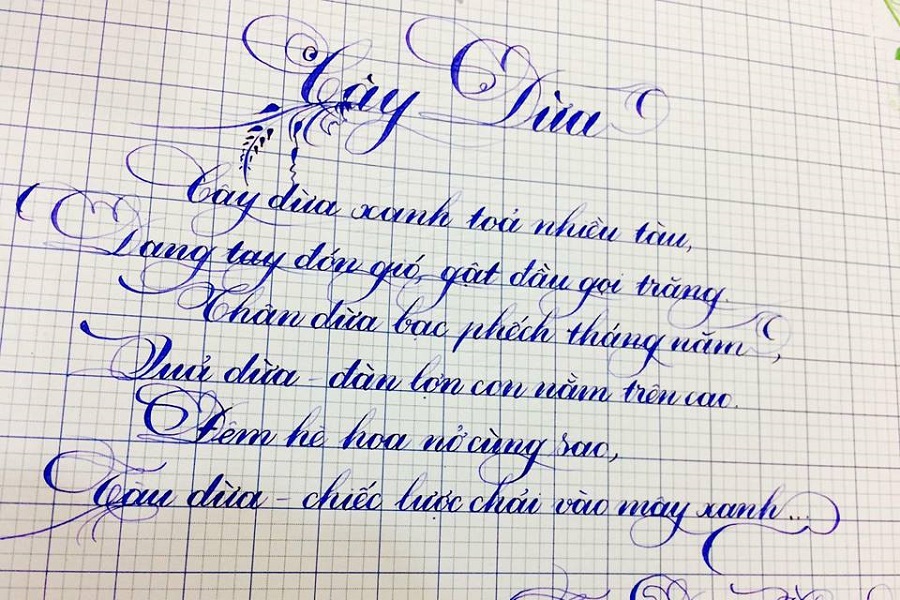 Cây Dừa
Cây dừa xanh toả nhiều tàu,
Dang tay đón gió, gật đầu gọi trăng.
Thân dừa bạc phếch tháng năm,
Quả dừa - đàn lợn con nằm trên cao.
Đêm hè hoa nở cùng sao,
Tàu dừa - chiếc lược chải vào mây xanh...